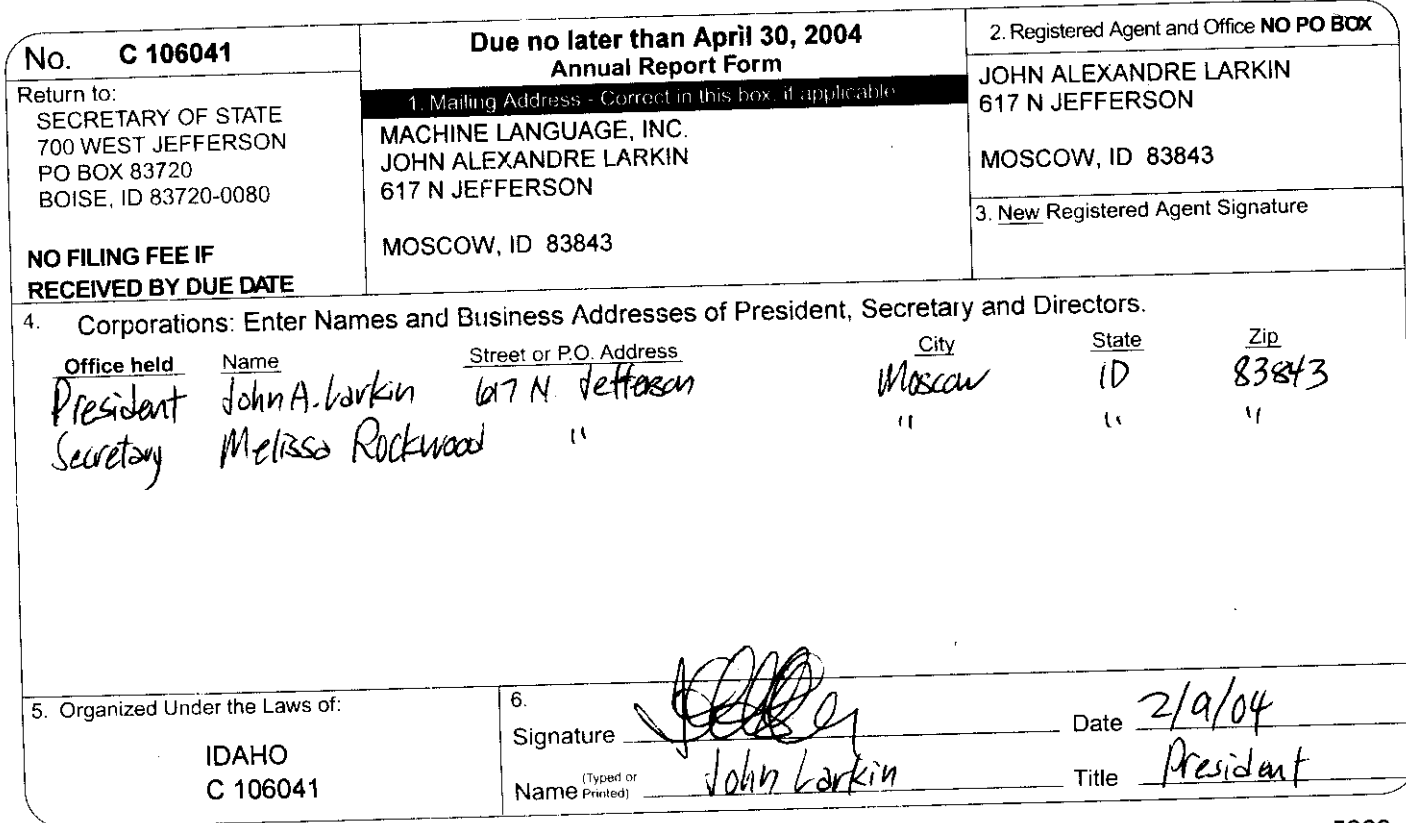 No. C 106041
Return to:
SECRETARY OF STATE
700 WEST JEFFERSON
PO BOX 83720
BOISE, ID 83720-0080
NO FILING FEE IF
RECEIVED BY DUE DATE
Due no later than April 30, 2004
Annual Report Form
1. Mailing Address - Correct in this box, if applicable
MACHINE LANGUAGE, INC.
JOHN ALEXANDRE LARKIN
617 N JEFFERSON
MOSCOW, ID 83843
2. Registered Agent and Office NO PO BOX
JOHN ALEXANDRE LARKIN
617 N JEFFERSON
MOSCOW, ID 83843
3. New Registered Agent Signature
4. Corporations: Enter Names and Business Addresses of President, Secretary and Directors.
Office held Name Street or P.O. Address City State Zip
President John A. Larkin 617 N. Jefferson Moscow ID 83843
Secretary Melissa Rockwood " " " "
5. Organized Under the Laws of:
IDAHO
C 106041
6.
Signature Date 2/9/04
Name (Typed or Printed) John Larkin Title President